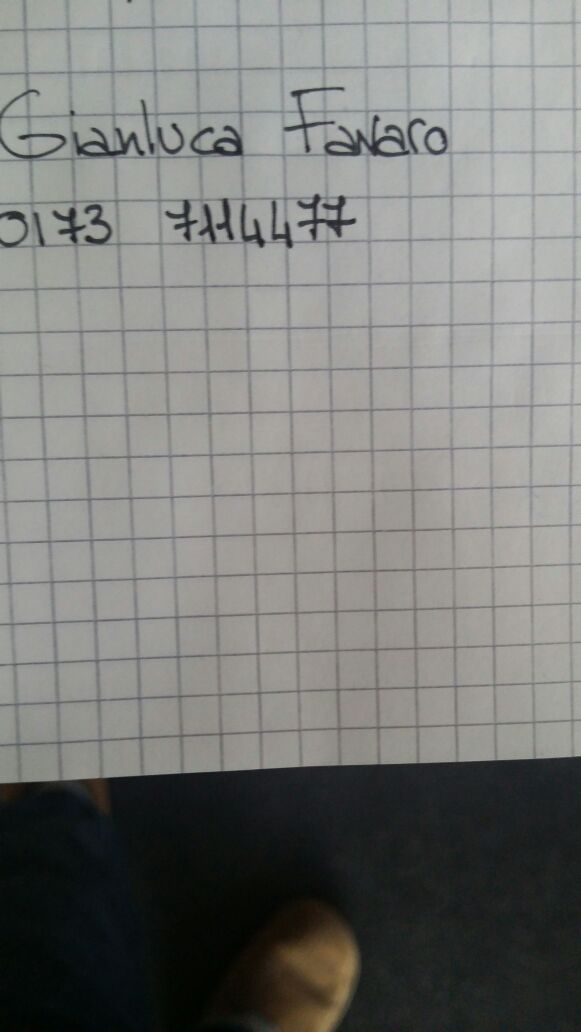 Gianluca Favaro
0173 7114477